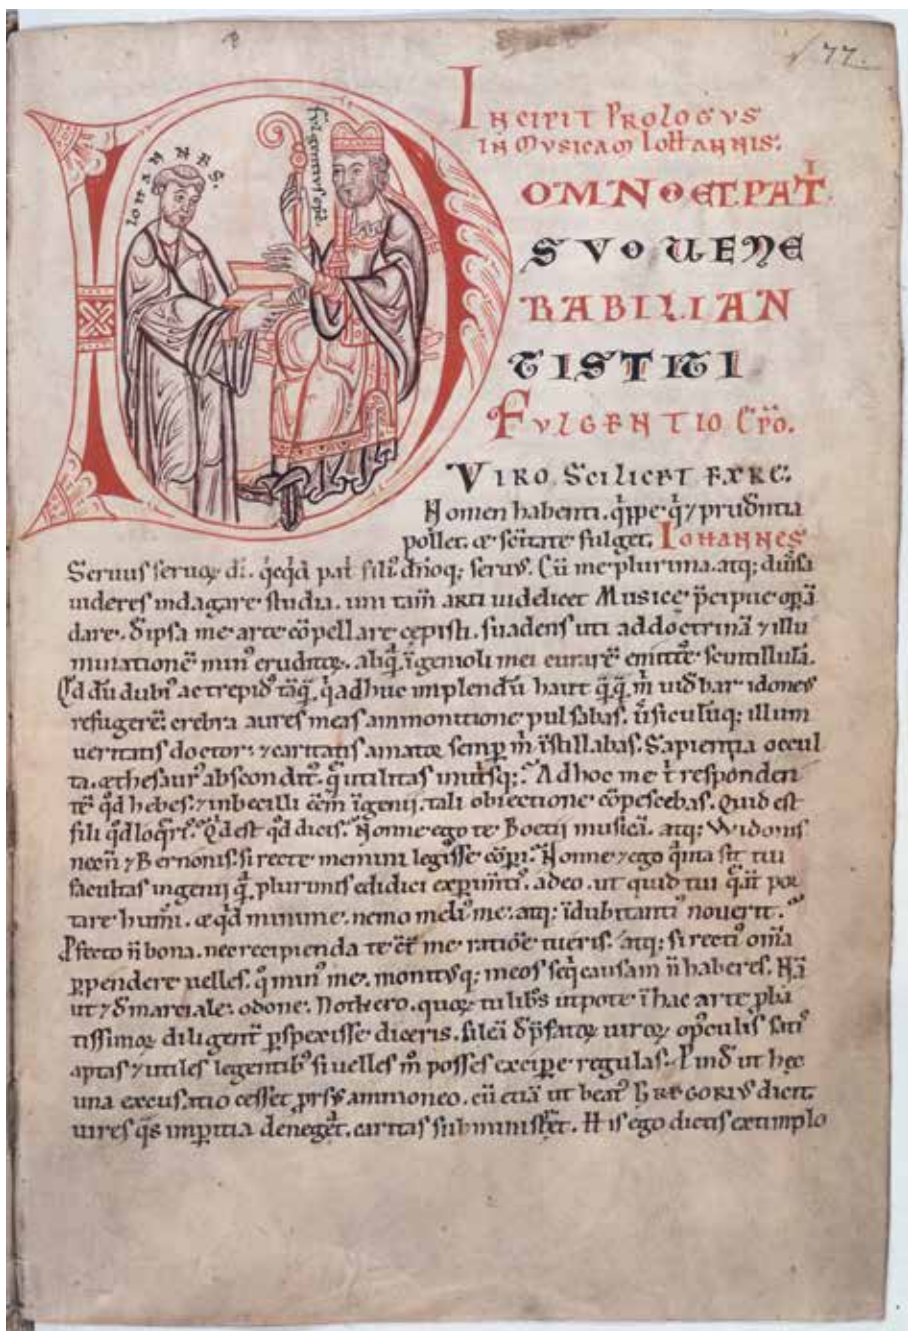 77.
IOHANNES.
fulgentius ep̄c
INCIPIT PROLOGVS
IN MVSICAM IOHANNIS:
DOMNO ET PAT̄
SVO VENE
RABILI AN
TISTITI
FVLGENTIO
VIRO SCILICET EXRE:
Nomen habenti. q̇ppe q̇ ⁊ prudentia
pollet. & sc̄itate fulget. IOHANNES
Seruus seruoꝝ di. q̇cq̇d patͥ filiꝰ dn̄oq; seruꝰ. Cū me plurima. atq; diuͥsa
uideres indagare studia. uni tam̄ arti uidelicet Musicę p̄cipue opā
dare. me arte cōpellare cępisti. suadens uti ad doctrinā ⁊ illu
minationē minꝰ eruditoꝝ. aliq̄ īgenioli mei curarē emittere scintillulā.
Q̇d dū dubiꝰ ac trepidꝰ adhuc implendū haut idoneꝰ
refugerē: crebra aures meas ammonitione pulsabas. illum
ueritatis doctor. ⁊ caritatis amatoꝝ semp m̄ īstillabas. Sapientia occul
ta. & thesaurꝰ absconditꝰ. q̄ utilitas inutͥsq;: Ad hoc me respondен
tē q̇d hebes ⁊ inbecilli eēm īgenij. tali obiectione cōpescebas. Quid est
fili q̇d loq̄rꝭ. Q̇d est q̇d dicis. Nonne ego te Boetij musicā. atq; Widonis
necn̄ ⁊ Bernonis. si recte memini legisse cōpͥi. Nonne ⁊ ego q̄nta sit tui
facultas ingenij plurimis edidici expͥimtͥ. adeo. ut quid tui q̇at por
tare humͥi. & q̇d minime. nemo meliꝰ me. atq; īdubitantiꝰ nouerit.
Pfecto n̄ bona. nec recipienda te cͦtͣ me ratiōe tueris. atq; si rectiꝰ om̄a
ꝑpendere uelles. q̇ minꝰ me. monitusq; meos seq̇ causam n̄ haberes. Nā
ut ⁊ đ marciale. odone. Notkero. quoꝝ tu libͦs utpote ī hac arte ꝓba
tissimoꝝ diligent̄ ꝑspexisse diceris. sileā đ p̄fatoꝝ uiroꝝ opͥculis satͥ
aptas ⁊ utiles legentibꝰ si uelles m̄ posses excipe regulas. ut hec
una excusatio cesset ꝓrsꝰ ammoneo. cū etiā ut beatꝰ GREGORIVS dicit.
uires q̄s impͥitia deneget. caritas subministͣt. His ego dictis extimplo